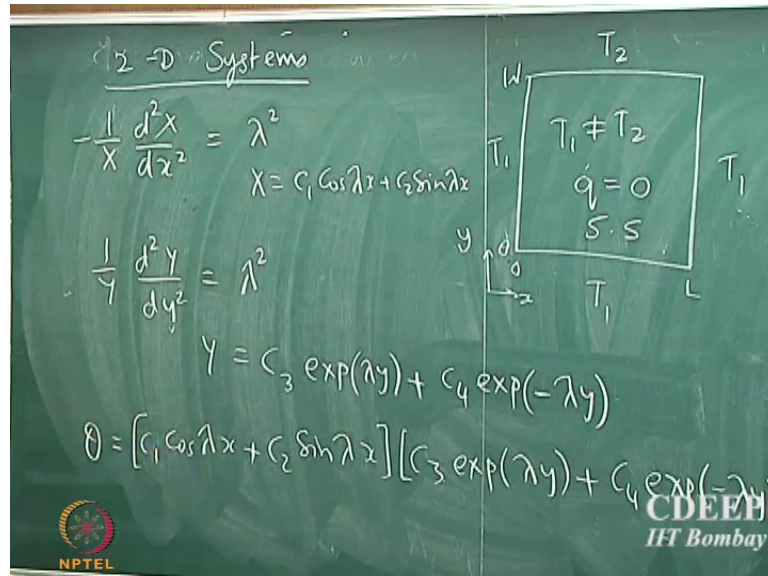 2-D Systems
-1/X d²X/dx² = λ²
X = C₁ Cosλx + C₂ Sinλx
1/Y d²y/dy² = λ²
Y = C₃ exp(λy) + C₄ exp(-λy)
θ = [C₁ Cosλx + C₂ Sinλx] [C₃ exp(λy) + C₄ exp(-λy)
T₂
W
T₁
T₁ ≠ T₂
q̇ = 0
S.S
T₁
y
0
0
x
T₁
L
NPTEL
CDEEP
IIT Bombay